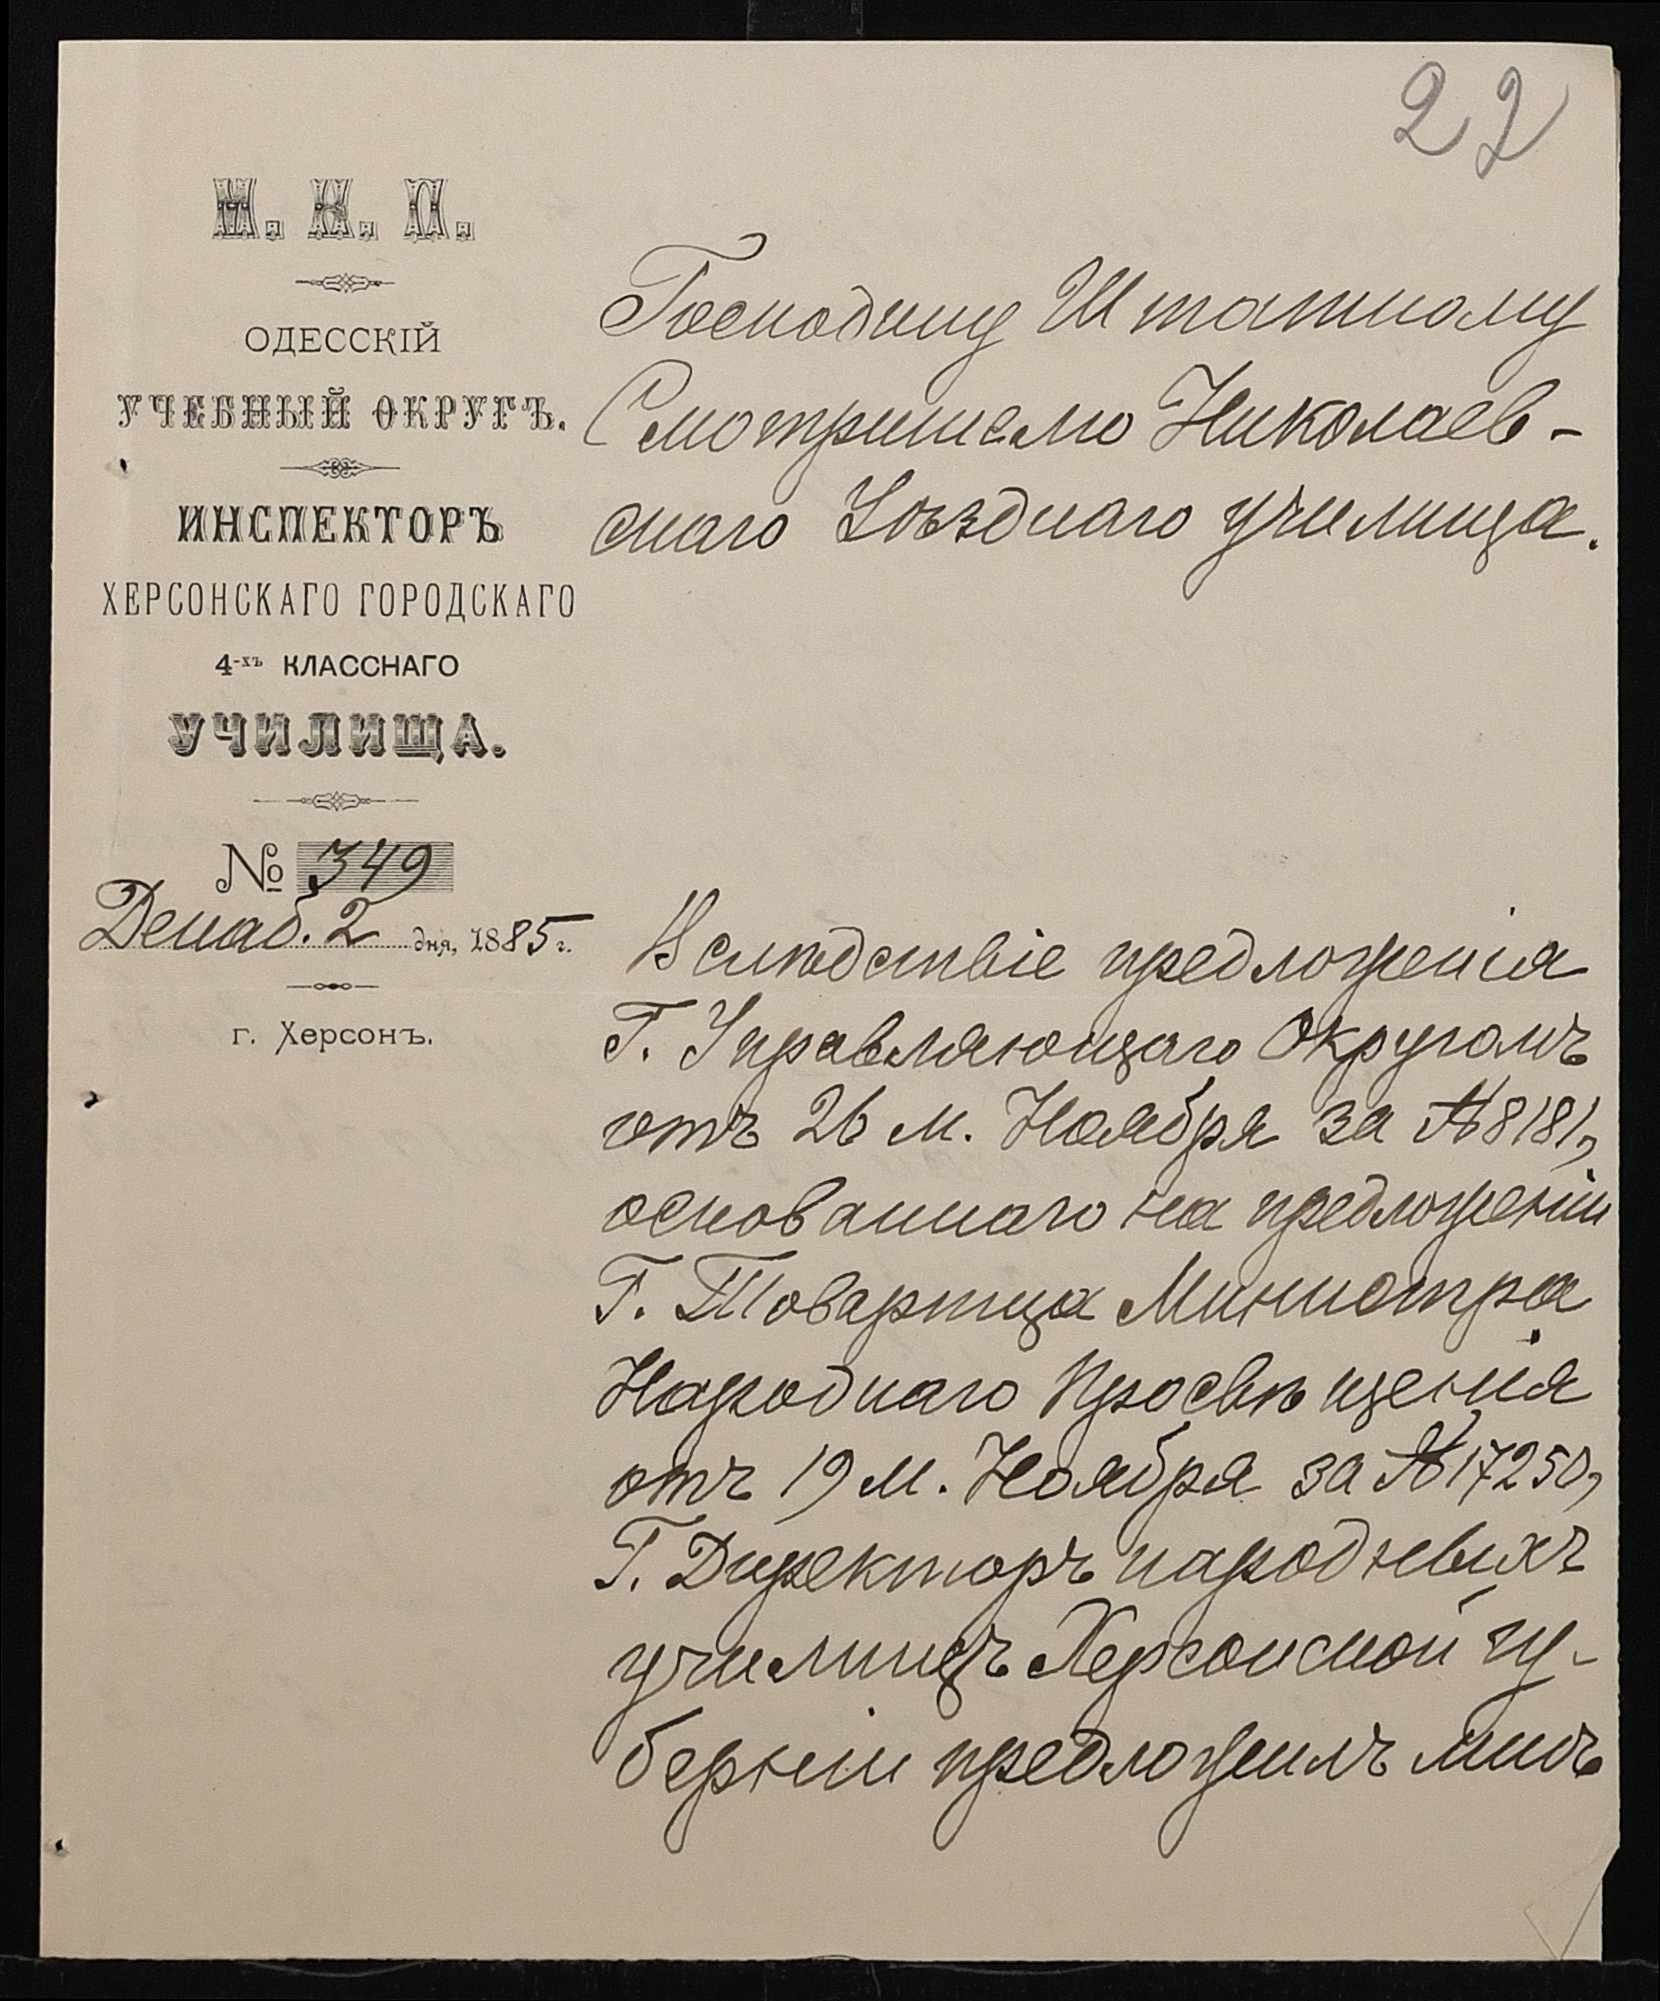 22
М. Н. П.
ОДЕССКІЙ
УЧЕБНЫЙ ОКРУГЪ.
ИНСПЕКТОРЪ
ХЕРСОНСКАГО ГОРОДСКАГО
4-хъ КЛАССНАГО
УЧИЛИЩА.
№ 349
Декаб. 2 дня, 1885 г.
г. Херсонъ.
Господину Штатному
Смотрителю Николаев-
скаго Уѣзднаго училища.
Вслѣдствіе предложенія
Г. Управляющаго Округомъ
отъ 26 м. Ноября за № 8181,
основаннаго на предложеніи
Г. Товарища Министра
Народнаго Просвѣщенія
отъ 19 м. Ноября за № 17250,
Г. Директоръ народныхъ
училищъ Херсонской гу-
берніи предложилъ мнѣ